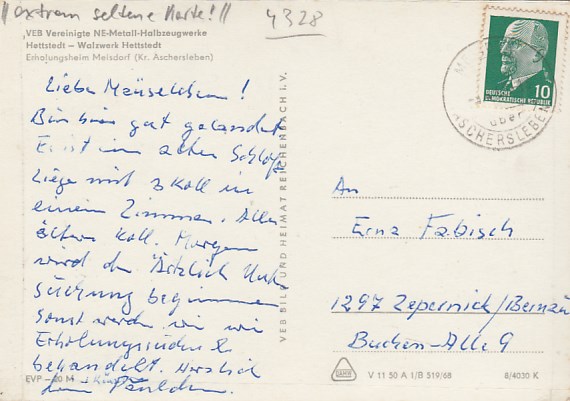 ||extrem seltene Karte!||
4328
VEB Vereinigte NE-Metall-Halbzeugwerke
Hettstedt — Walzwerk Hettstedt
Erholungsheim Meisdorf (Kr. Aschersleben)
Liebe Mäuselchen!
Bin hier gut gelandet
Es ist ein altes Schloß
Liege mit 3 Koll in
einem Zimmer. Alles
ältere Koll. Morgen
wird die Ärtzlich Unter
suchung beginnen
sonst werden wir wie
Erholungssuchende
behandelt. Herzlich
Dein
EVP - 20 M
VEB BILD UND HEIMAT REICHENBACH I. V.
10
DEUTSCHE
DEMOKRATISCHE REPUBLIK
über
ASCHERSLEBEN
An
Erna Fabisch
1297 Zepernick/Bernau
Buchen-Alle 9
V 11 50 A 1/B 519/68
8/4030 K